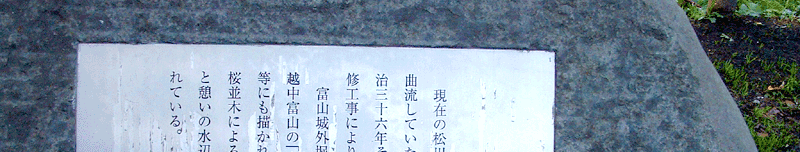 現在の松川
曲流していた
治三十六年そ
修工事により
富山城外堀
越中富山の「
等にも描かれ
桜並木による
と憩いの水辺
れている。